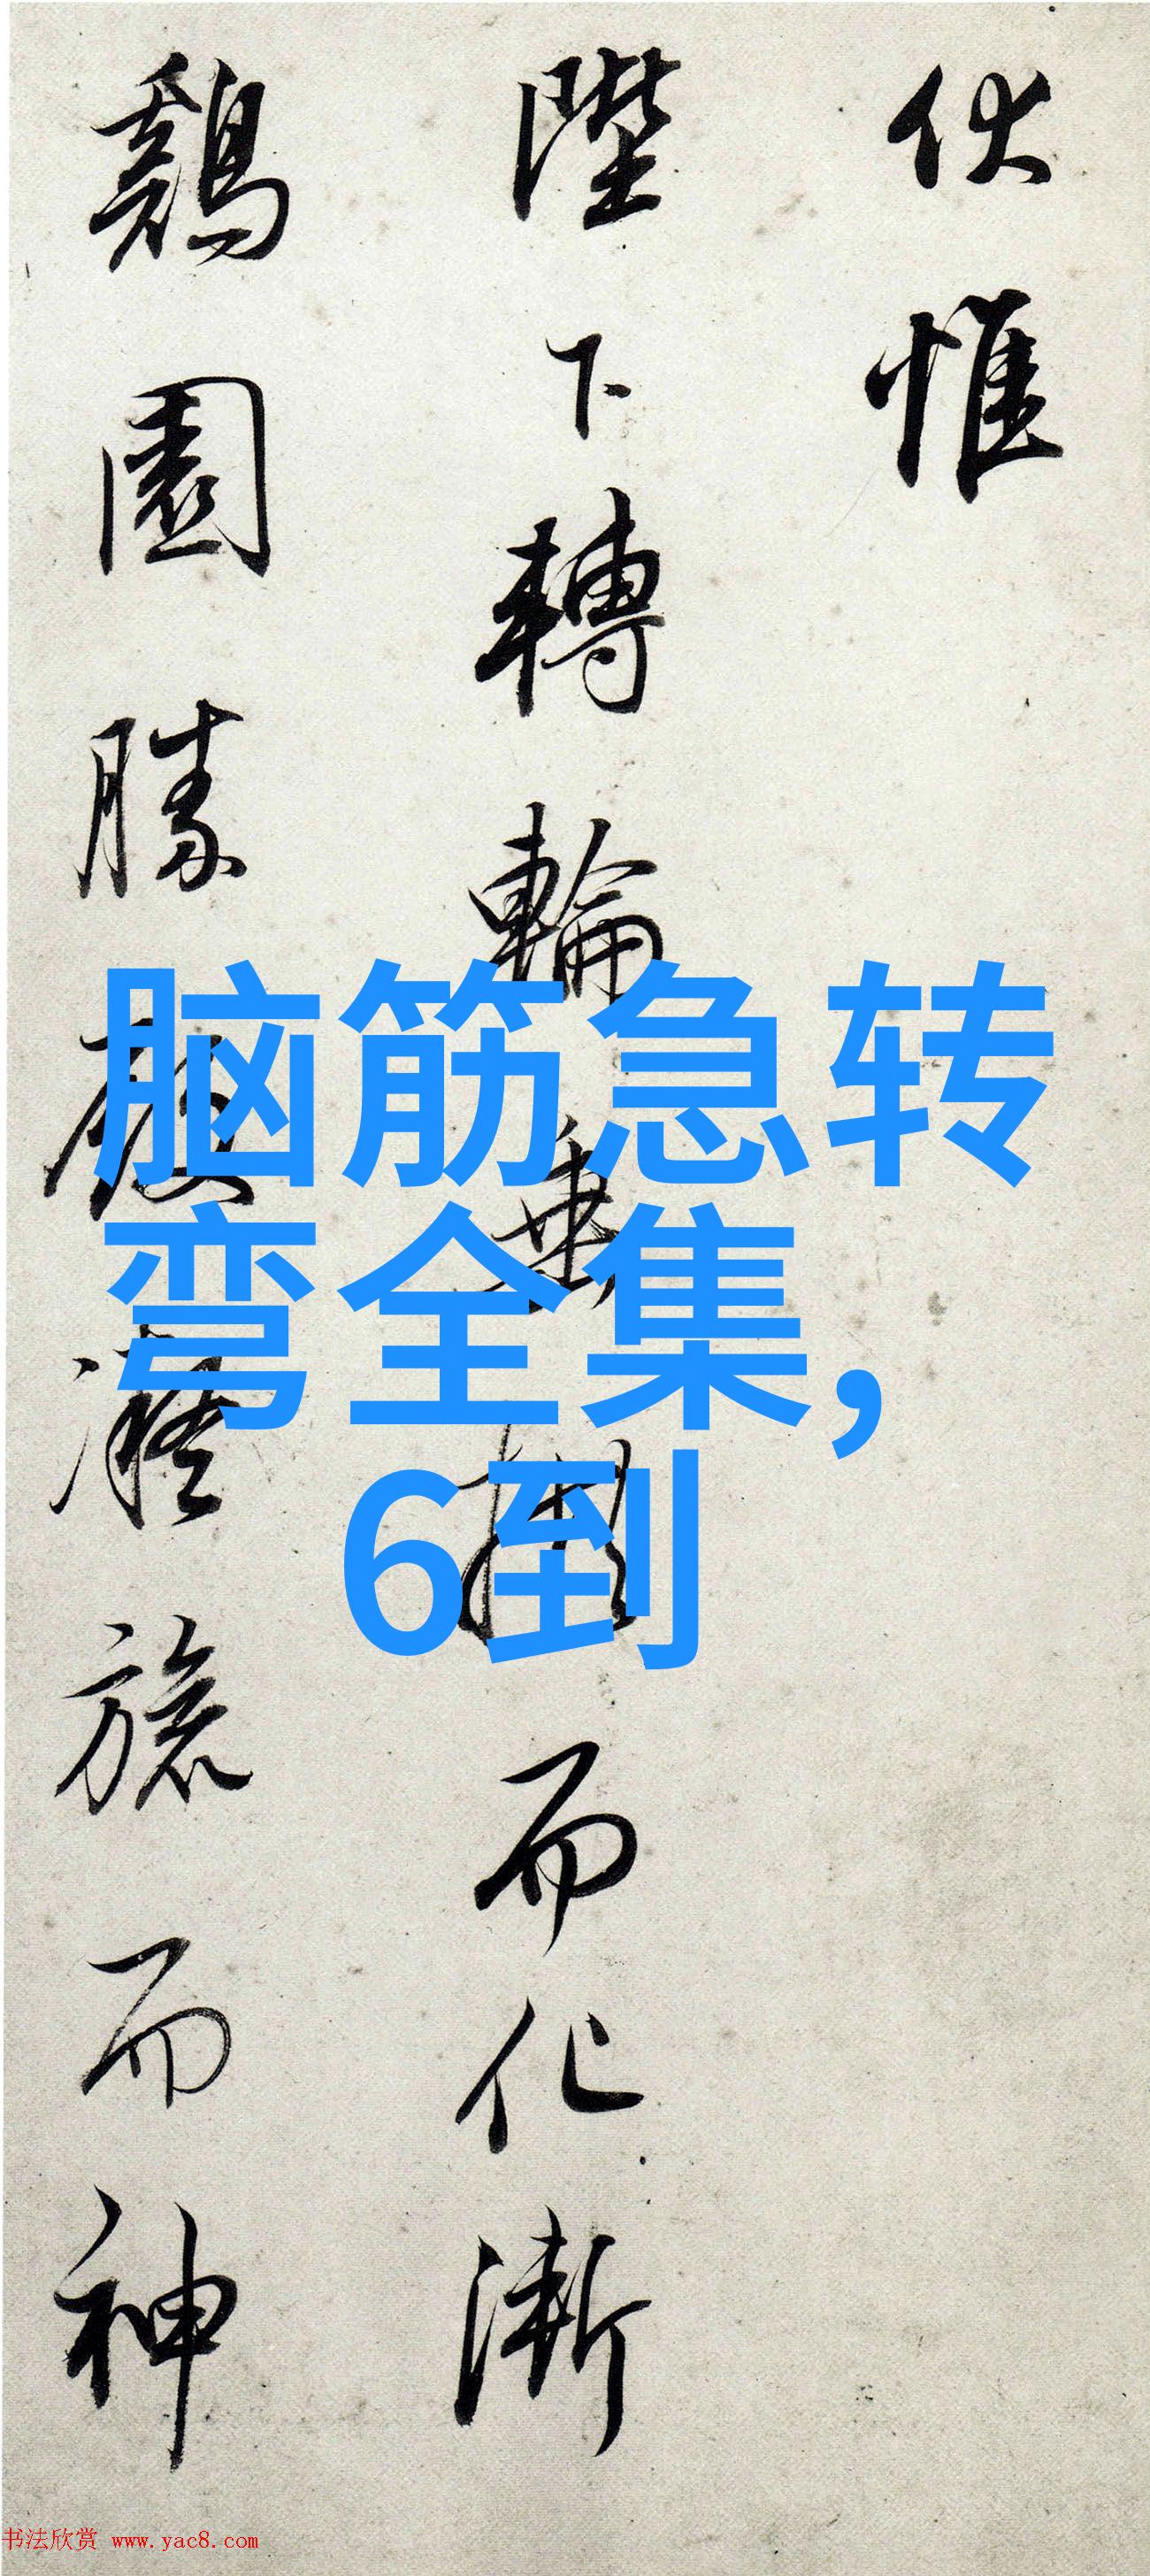 伏惟
陛下轉輪乘而化漸
鷄園勝而神
脑筋急转
弯全集，
6到
书法欣赏 www.yac8.com